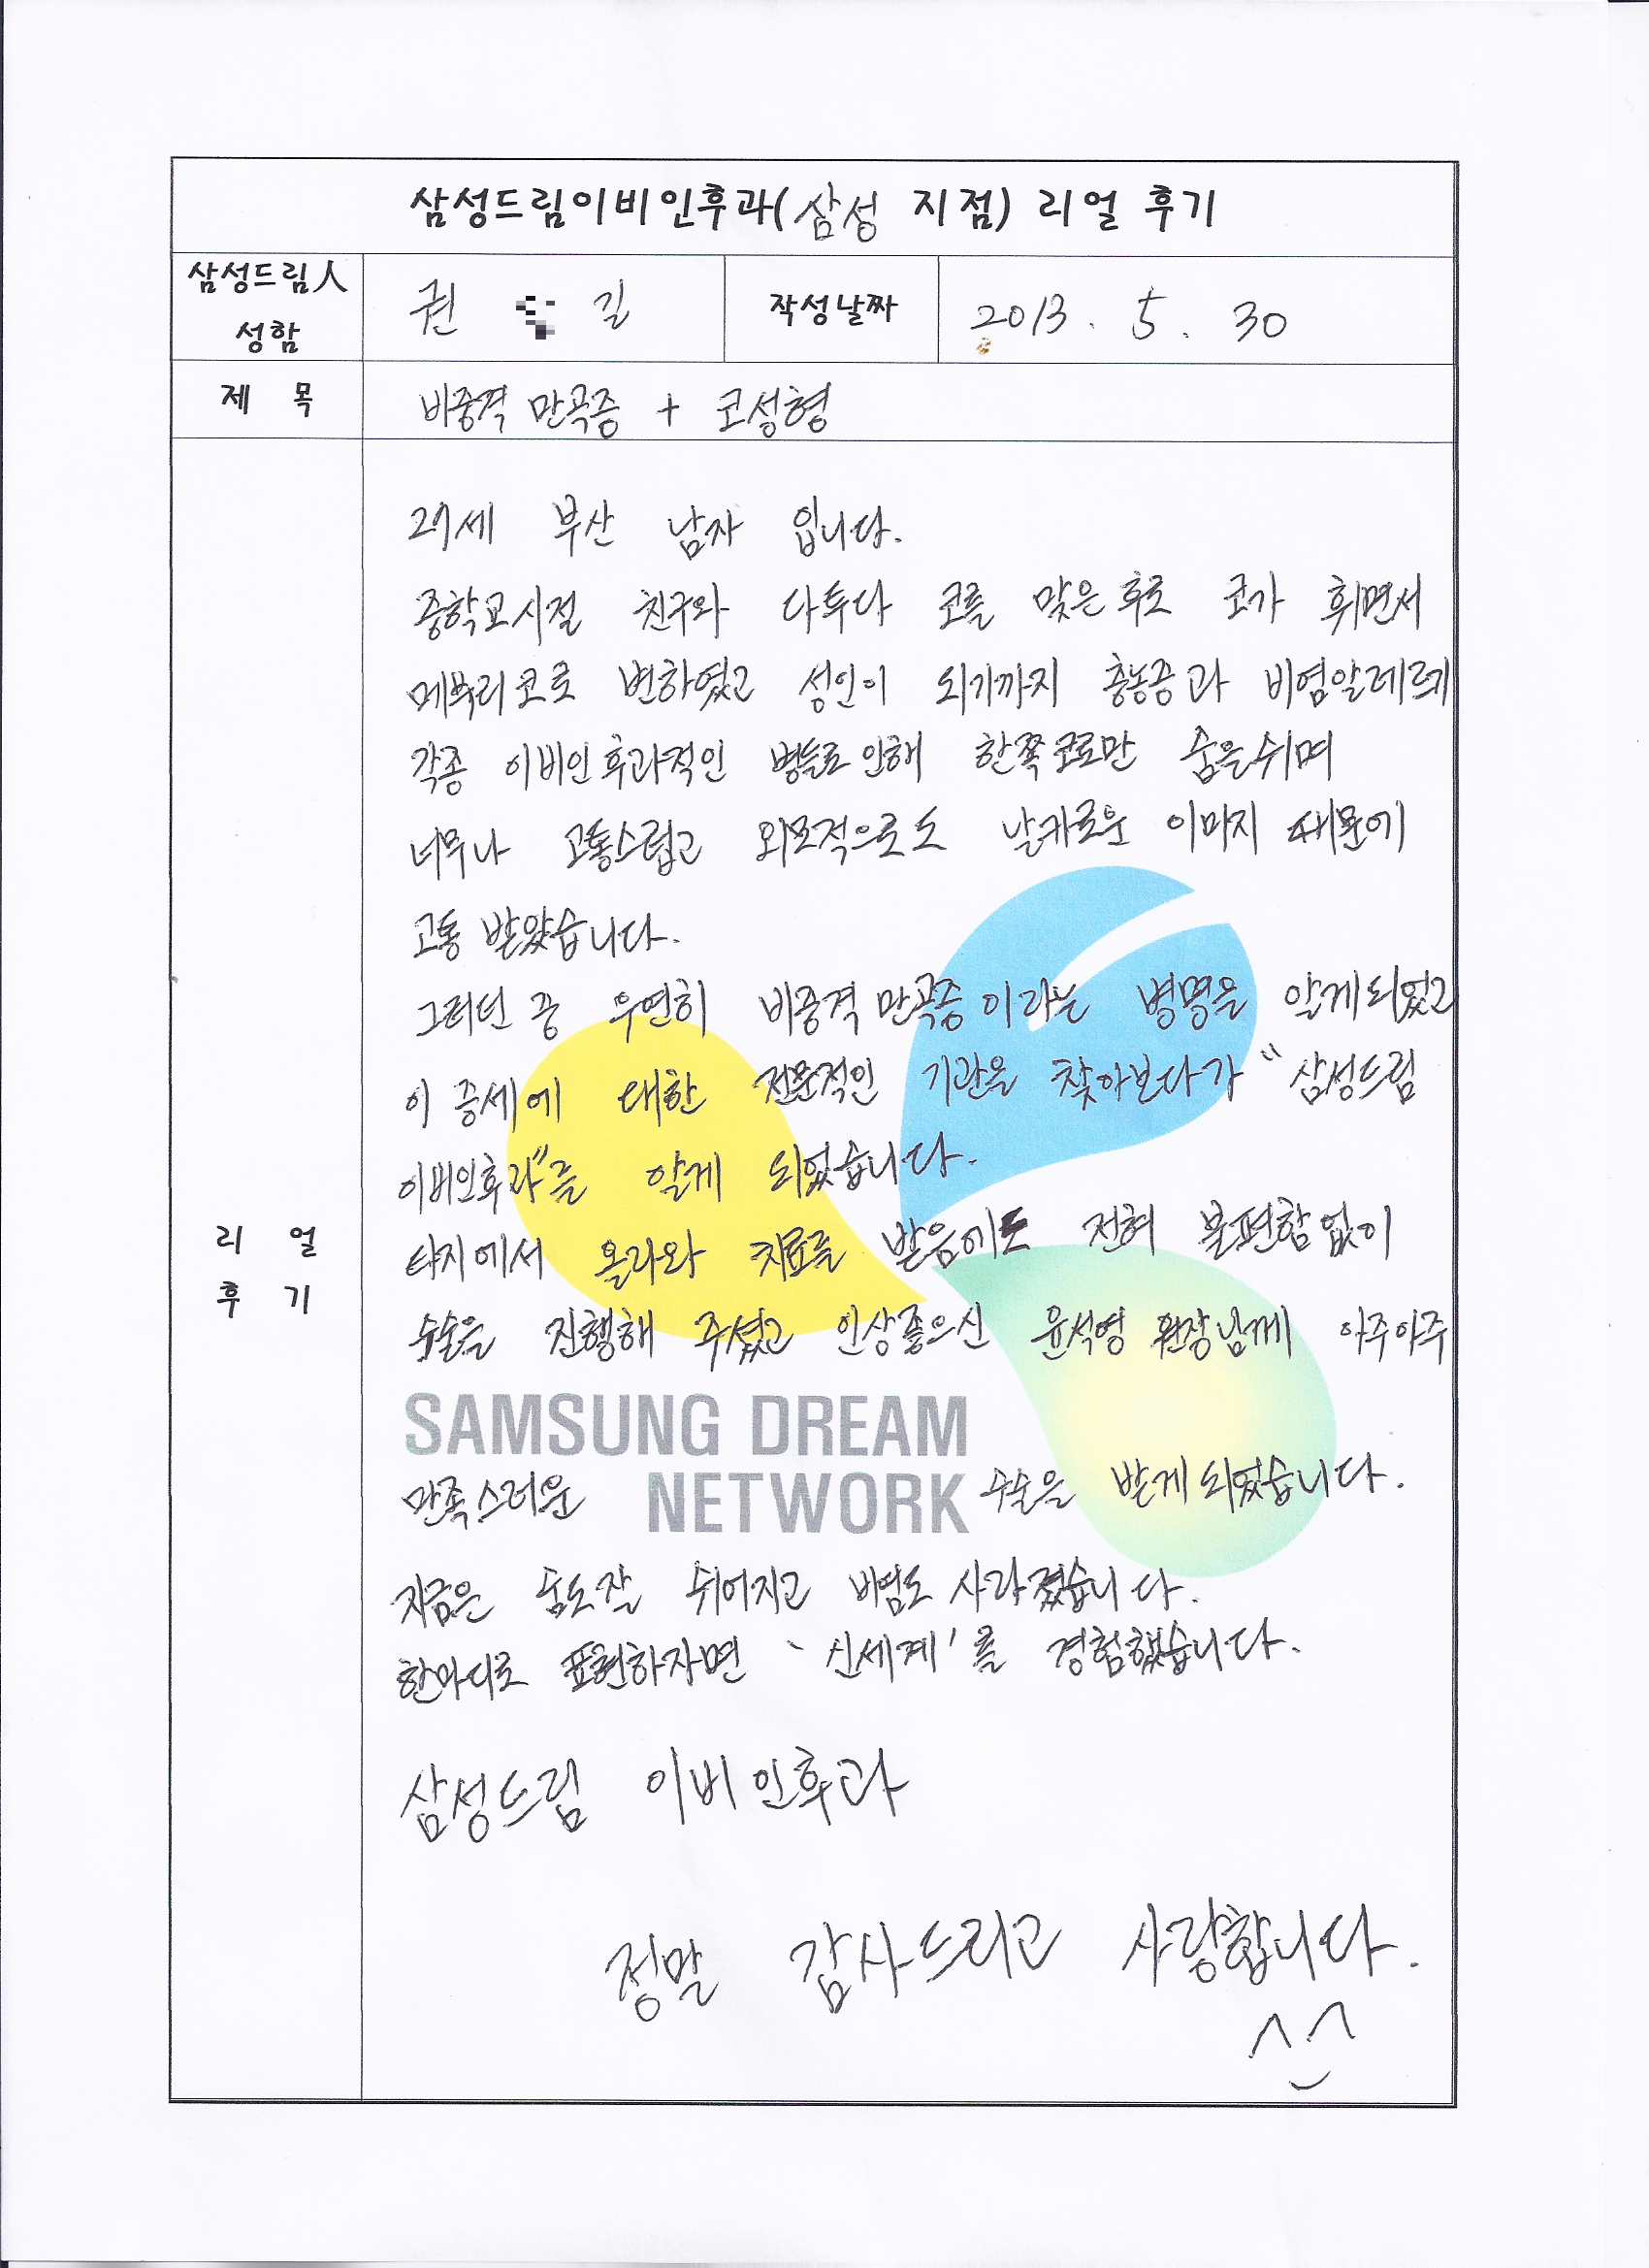 삼성드림이비인후과(삼성 지점) 리얼 후기
삼성드림人
성함
권 길
작성날짜
2013. 5. 30
제 목
비중격 만곡증 + 코성형
27세 부산 남자 입니다.
중학교시절 친구와 다투다 코를 맞은후로 코가 휘면서
메부리코로 변하였고 성인이 되기까지 충농증과 비염알레르기
각종 이비인후과적인 병들로 인해 한쪽코로만 숨을쉬며
너무나 고통스럽고 외모적으로도 날카로운 이미지 때문에
고통 받았습니다.
그러던 중 우연히 비중격 만곡증이라는 병명을 알게되었고
이 증세에 대한 전문적인 기관을 찾아보다가 "삼성드림
이비인후과"를 알게 되었습니다.
타지에서 올라와 치료를 받음에도 전혀 불편함없이
수술을 진행해 주셨고 인상좋으신 윤석영 원장님께 아주아주
SAMSUNG DREAM
NETWORK
만족스러운 수술을 받게되었습니다.
지금은 숨도잘 쉬어지고 비염도 사라졌습니다.
한마디로 표현하자면 '신세계'를 경험했습니다.
리 얼
후 기
삼성드림 이비인후과
정말 감사드리고 사랑합니다.
^_^